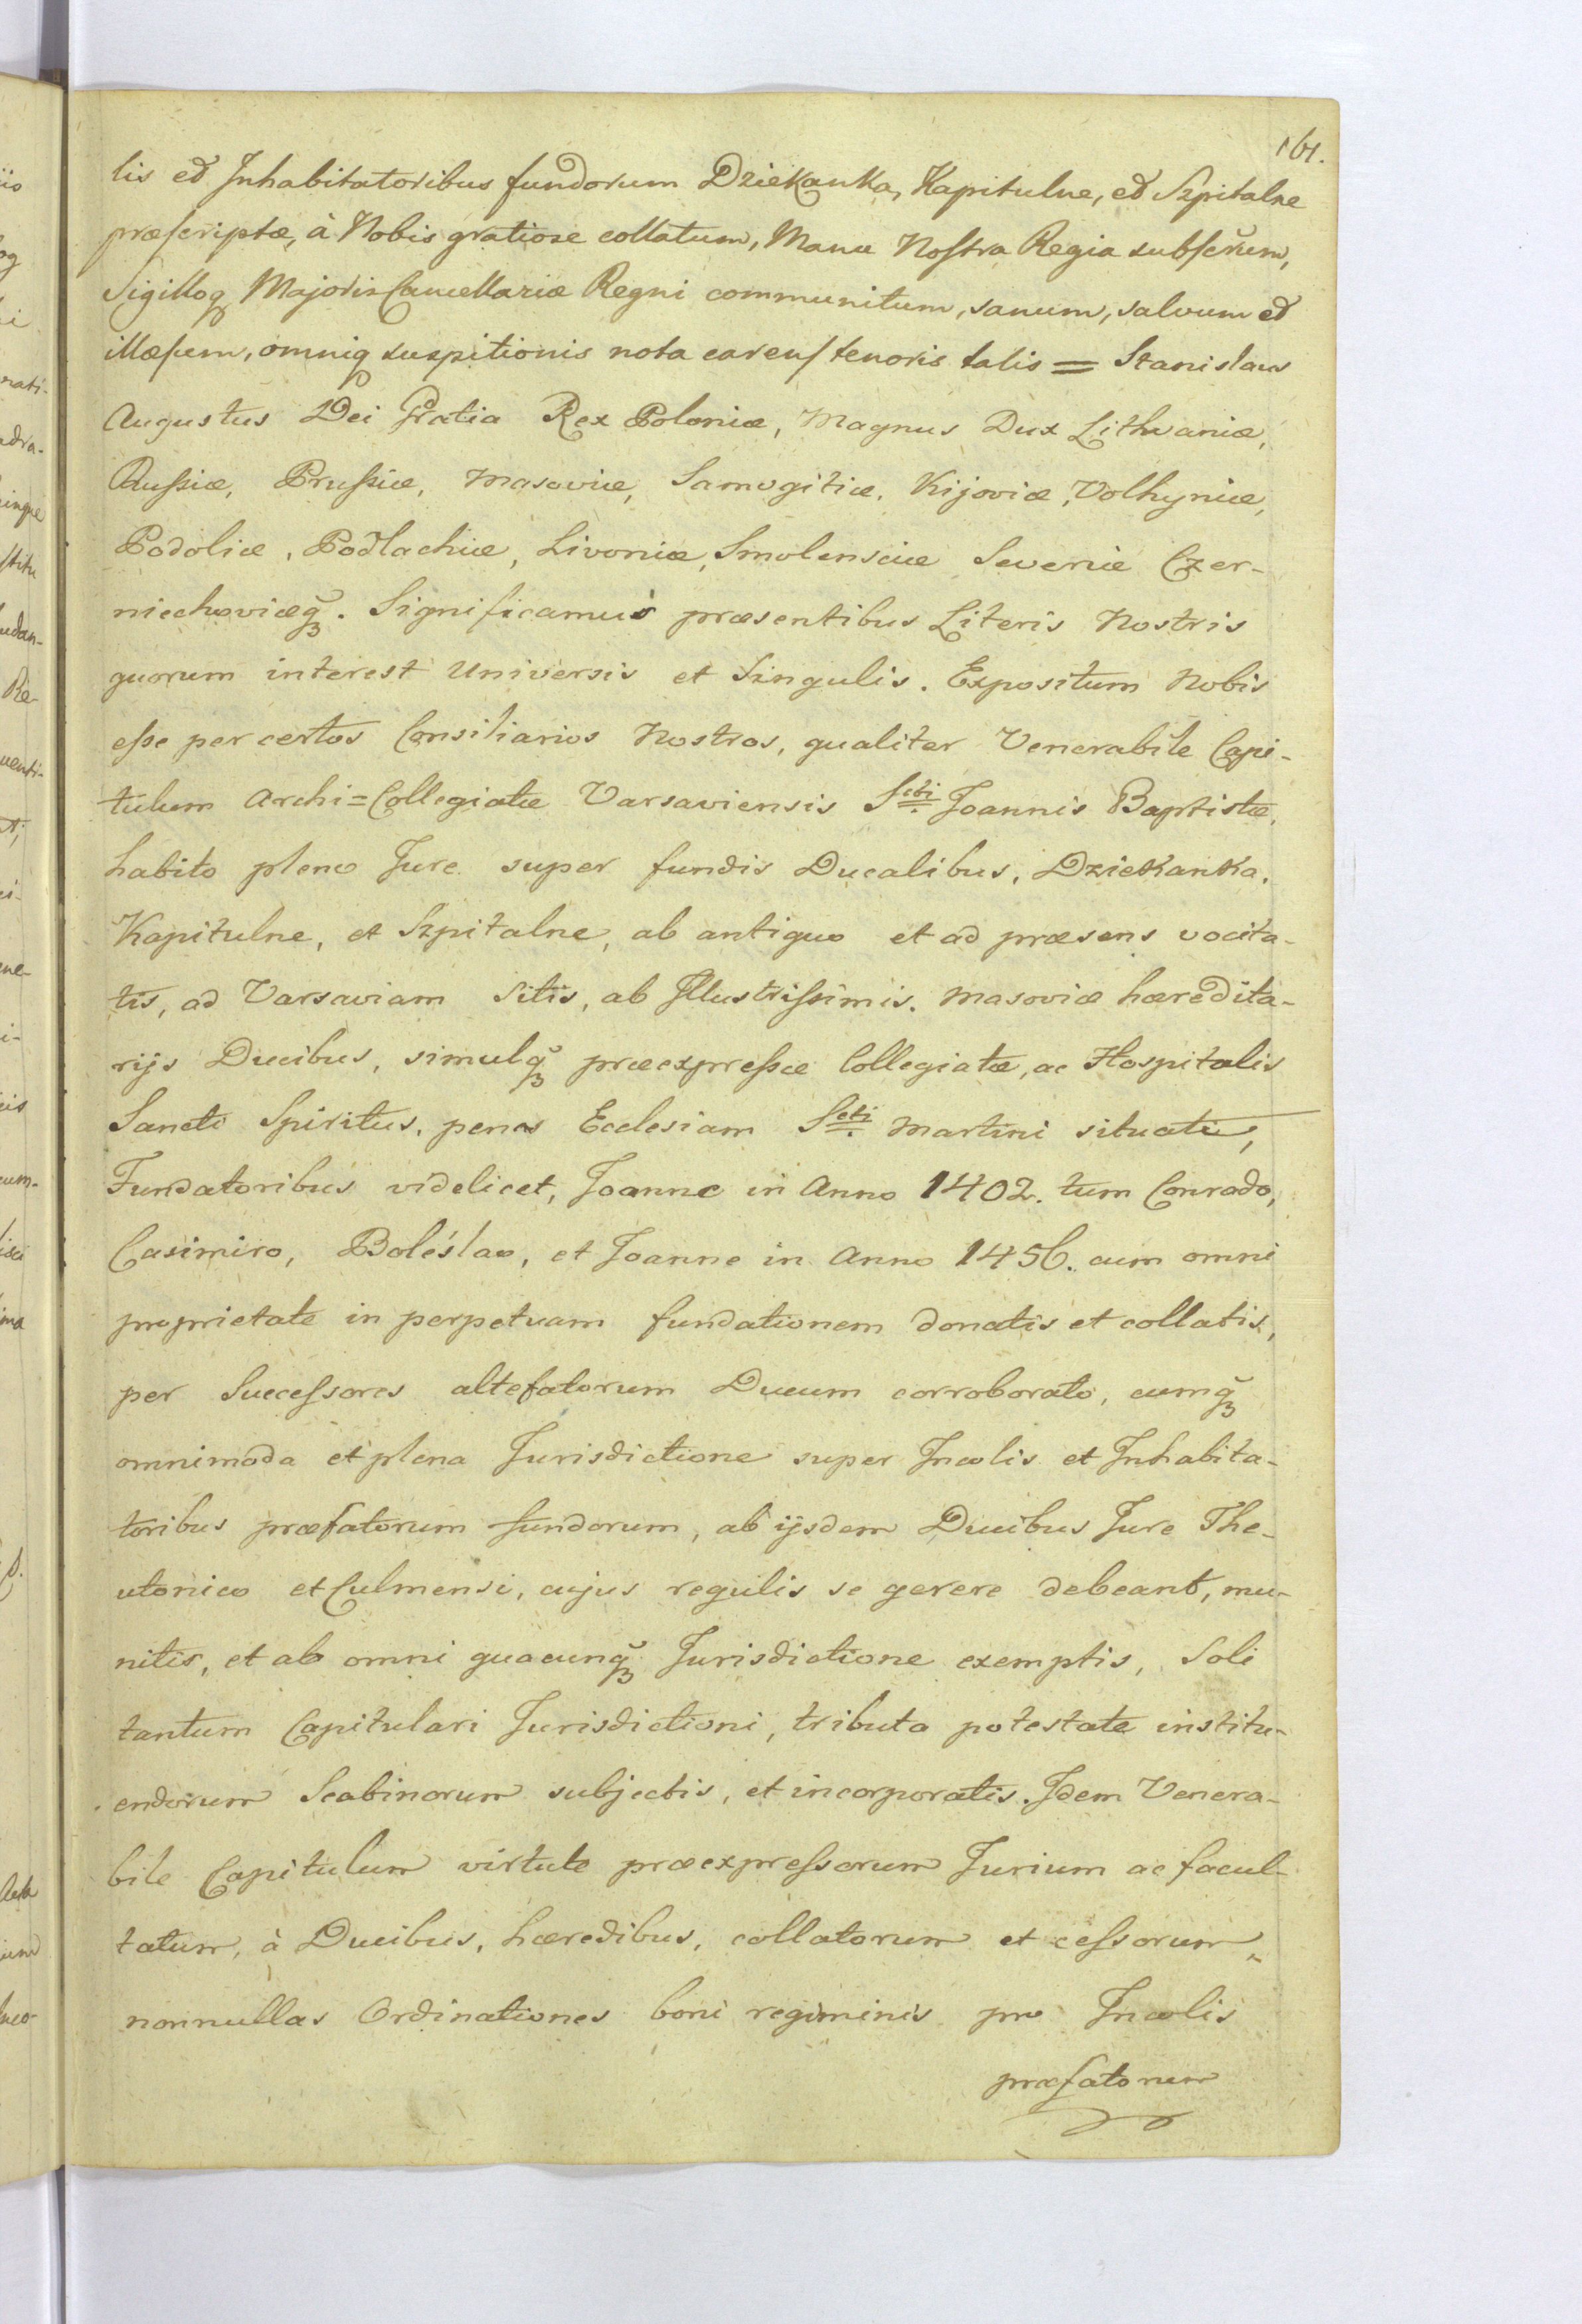 161.
lis et Inhabitatoribus fundorum Dziekanka, Kapitulne, et Szpitalne
præscriptæ, à Nobis gratiose collatum, Manu Nostra Regia subscr̃um,
Sigilloq̃ Majoris Cancellariæ Regni communitum, sanum, salvum et
illæsum, omniq̃ suspitionis nota carens tenoris talis = Stanislaus
Augustus Dei Gratia Rex Poloniæ, Magnus Dux Lithvaniæ,
Russiæ, Prussiæ, Masoviæ, Samogitiæ, Kijoviæ, Volhyniæ,
Podoliæ, Podlachiæ, Livoniæ, Smolensciæ Severiæ Czer-
niechoviæq̃. Significamus præsentibus Literis Nostris
quorum interest Universis et Singulis. Expositum Nobis
esse per certos Consiliarios Nostros, qualiter Venerabile Capi-
tulum Archi=Collegiatæ Varsaviensis Scti Joannis Baptistæ,
habito pleno Jure super fundis Ducalibus, Dziekanka,
Kapitulne, et Szpitalne, ab antiquo et ad præsens vocita-
tis, ad Varsaviam Sitis, ab Illustrissimis. Masoviæ hæredita-
rijs Ducibus, simulq̃ præexpressæ Collegiatæ, ac Hospitalis
Sancti Spiritus, penes Ecclesiam Scti Martini situati,
Fundatoribus videlicet, Joanne in Anno 1402. tum Conrado,
Casimiro, Bolesłao, et Joanne in Anno 1456. cum omni
proprietate in perpetuam fundationem donatis et collatis,
per Successores altefatorum Ducum corroborato, cumq̃
omnimoda et plena Jurisdictione super Incolis et Inhabita-
toribus præfatorum fundorum, ab ijsdem Ducibus Jure The-
utonico et Culmensi, cujus regulis se gerere debeant, mu-
nitis, et ab omni quacunq̃ Jurisdictione exemptis, Soli
tantum Capitulari Jurisdictioni, tributa potestate institu-
endorum Scabinorum subjectis, et incorporatis. Idem Venera-
bile Capitulum virtute præexpressorum Jurium ac facul-
tatum, à Ducibus, hæredibus, collatorum et cessorum,
nonnullas Ordinationes boni regiminis pro Incolis
præfatorum